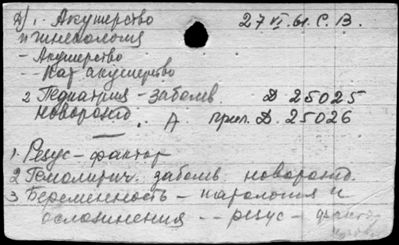 2/1. Акушерство 27 VI. 61. С. В.
и гинекология
- Акушерство
- Пат акушерство
2 Педиатрия - заболев. Д 25025
новорожд. А прил. Д. 25026
1. Резус - фактор
2 Гемолитич. заболев. новорожд.
3 Беременность - патология и
осложнения -- резус - фактор